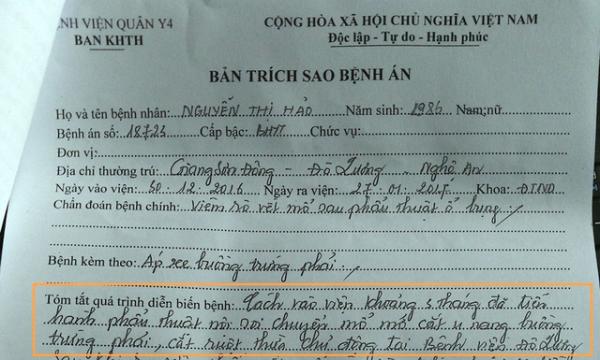 BỆNH VIỆN QUÂN Y4
BAN KHTH
CỘNG HÒA XÃ HỘI CHỦ NGHĨA VIỆT NAM
Độc lập - Tự do - Hạnh phúc
BẢN TRÍCH SAO BỆNH ÁN
Họ và tên bệnh nhân: NGUYỄN THỊ HẢO Năm sinh: 1986 Nam; nữ
Bệnh án số: 18723 Cấp bậc: BHYT Chức vụ:
Đơn vị:
Địa chỉ thường trú: Giang Sơn Đông - Đô Lương - Nghệ An
Ngày vào viện: 30.12.2016 Ngày ra viện: 27.01.2017 Khoa:
Chẩn đoán bệnh chính: Viêm rò vết mổ sau phẫu thuật ổ bụng
Bệnh kèm theo: Áp xe buồng trứng phải
Tóm tắt quá trình diễn biến bệnh: Cách vào viện khoảng 3 tháng đã tiến
hành phẫu thuật nội soi chuyển mổ mở cắt u nang buồng
trứng phải, cắt ruột thừa chủ động tại Bệnh viện Đô Lương